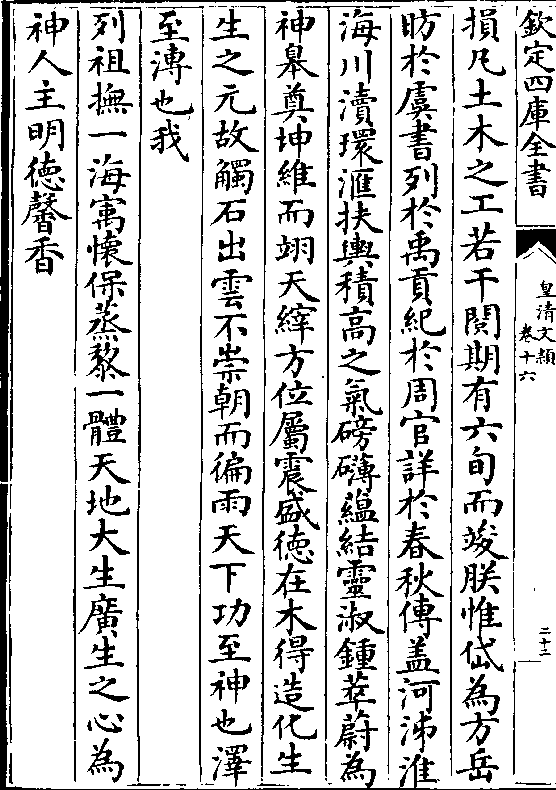 欽定四庫全書
皇清文穎
卷十六
二十二
損凡土木之工若干閱期有六旬而竣朕惟岱為方岳
昉於虞書列於禹貢紀於周官詳於春秋傳盖河泲淮
海川瀆環滙扶輿積髙之氣磅礴藴結靈淑鍾萃蔚為
神臯奠坤維而翊天緯方位屬震盛徳在木得造化生
生之元故觸石出雲不崇朝而徧雨天下功至神也澤
至溥也我
列祖撫一海寓懷保蒸黎一體天地大生廣生之心為
神人主明徳馨香